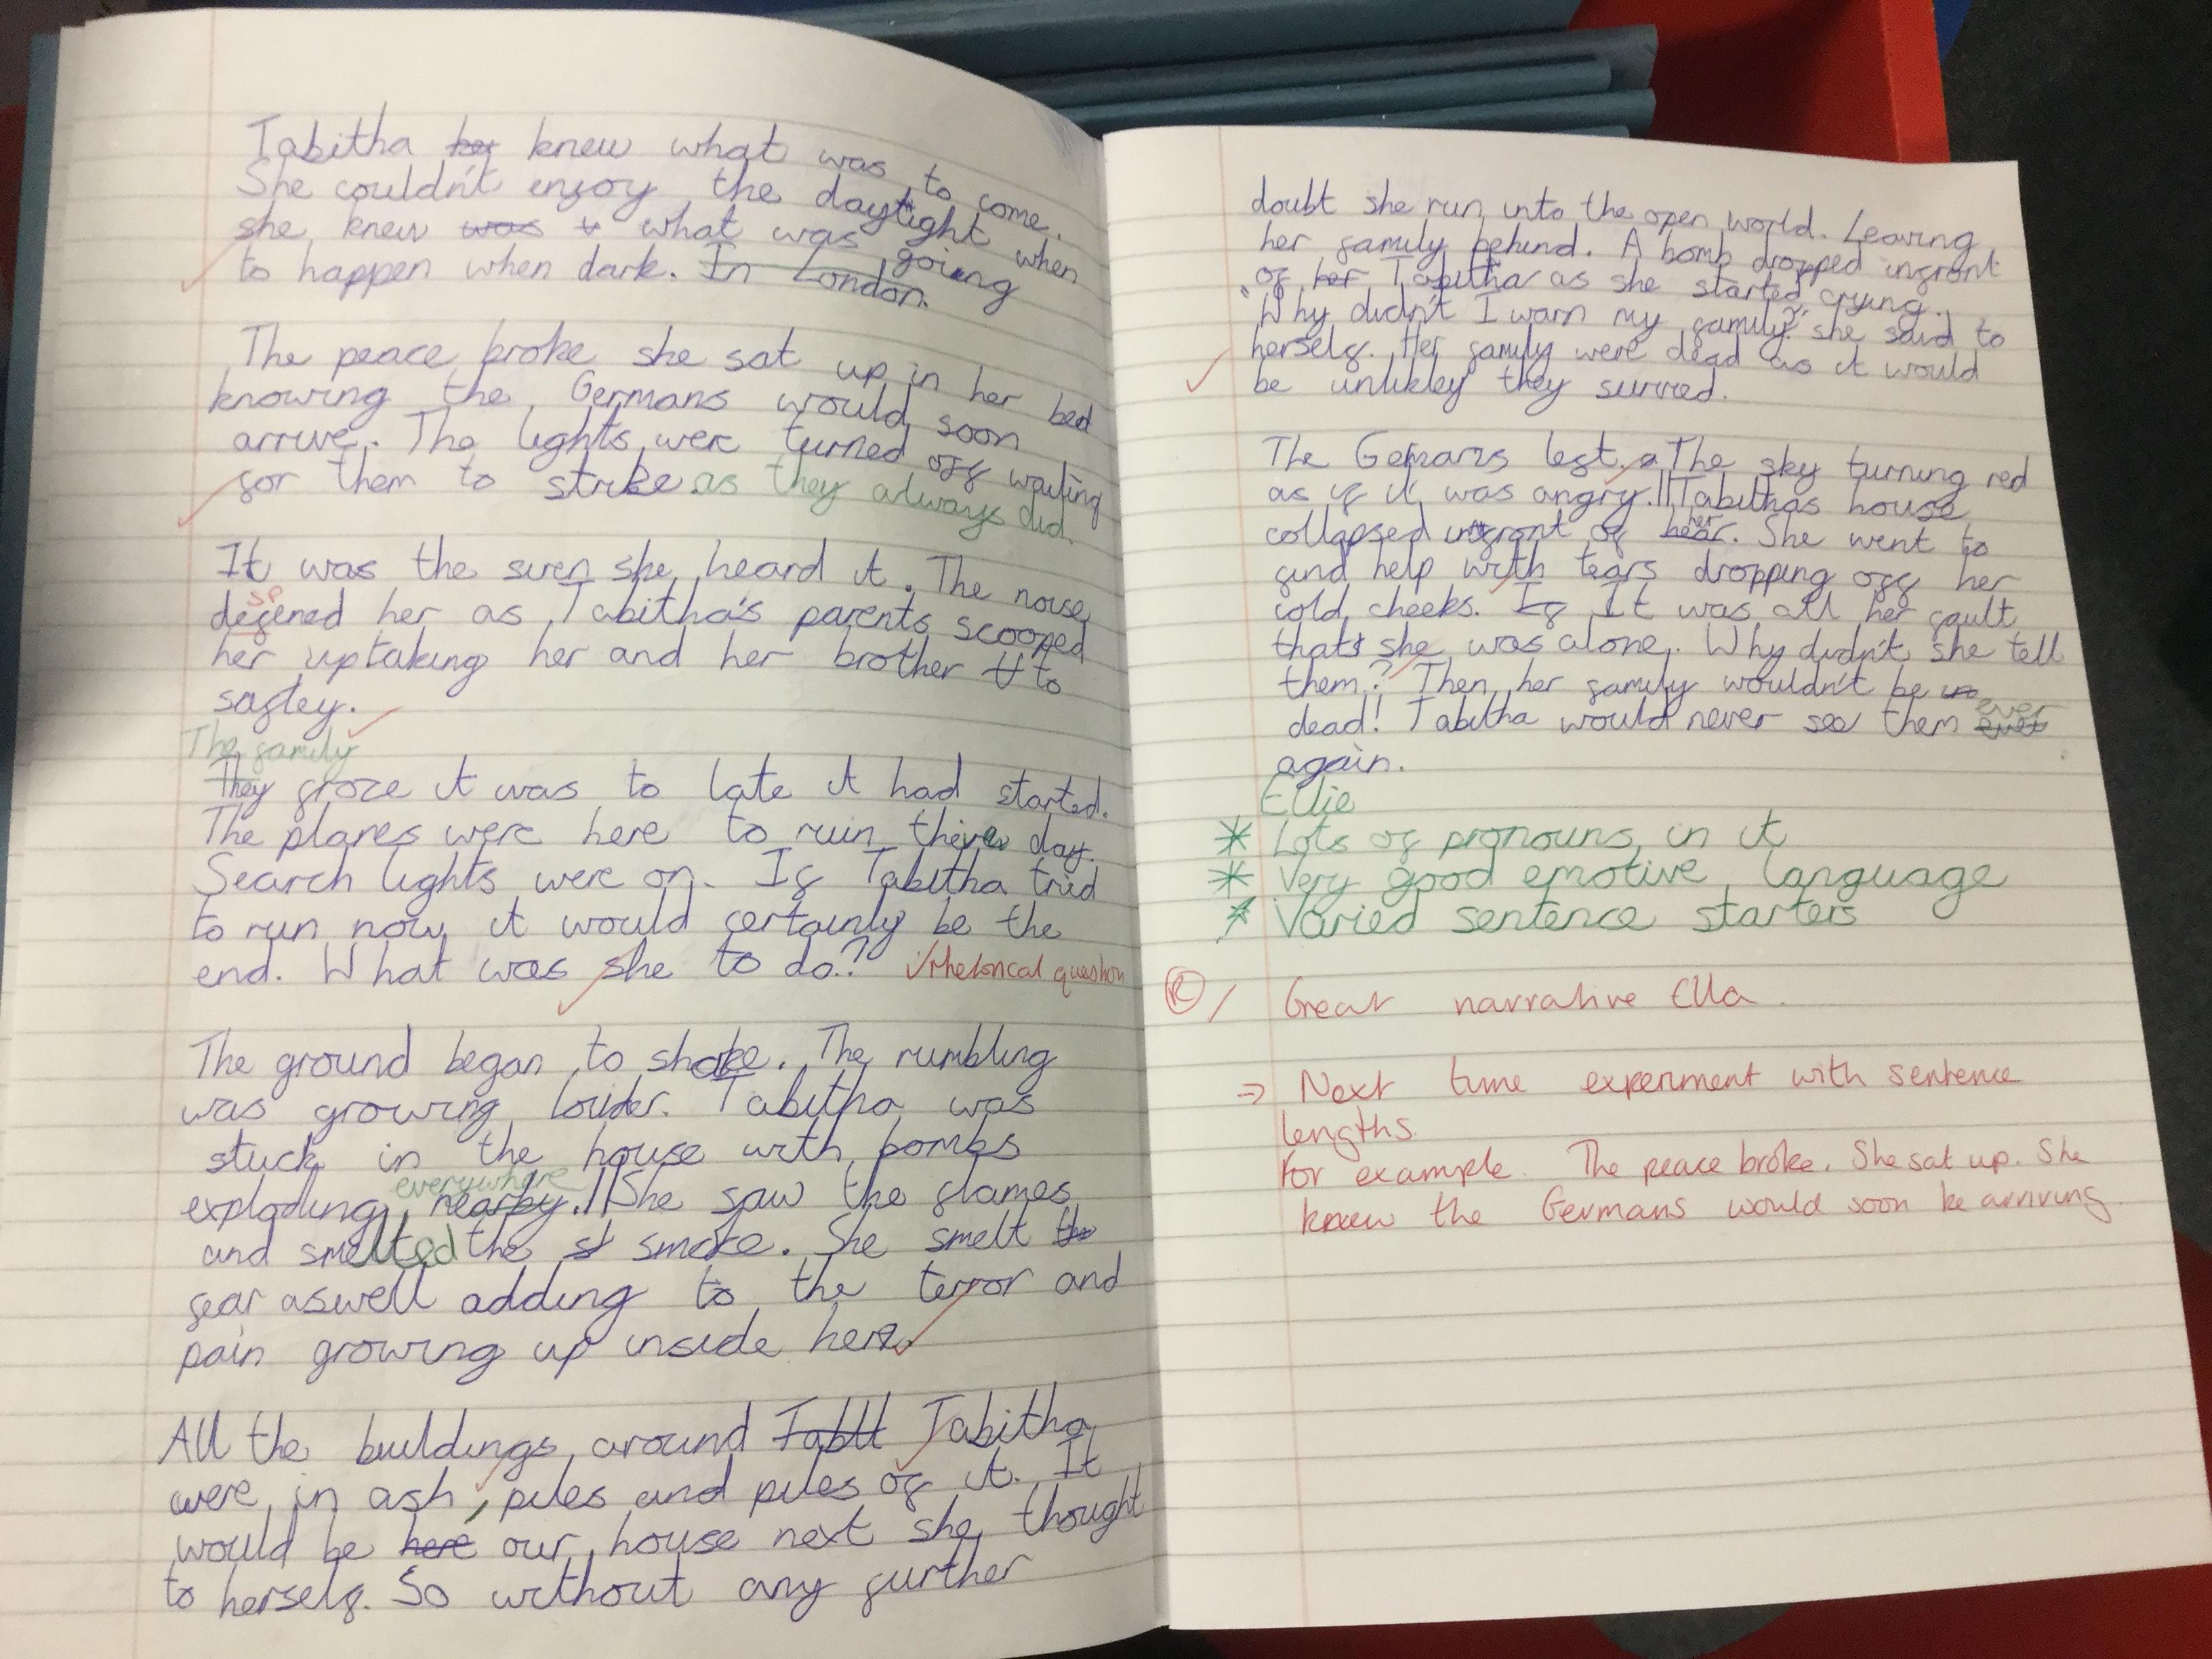 Tabitha knew what was to come.
She couldn't enjoy the daylight when
she knew was what was going
to happen when dark. In London.
The peace broke she sat up in her bed
knowing the Germans would soon
arrive. The lights were turned off waiting
for them to strike as they always did.
It was the siren she heard it. The noise
sp
defened her as Tabitha's parents scooped
her up taking her and her brother to
saftey.
The family
They froze it was to late it had started.
The planes were here to ruin their day.
Search lights were on. If Tabitha tried
to run now it would certainly be the
end. What was she to do? ✓rhetorical question
The ground began to shake. The rumbling
was growing louder. Tabitha was
stuck in the house with bombs
everywhere
exploding nearby. || She saw the flames
and smelted the smoke. She smelt the
fear aswell adding to the terror and
pain growing up inside her.
All the buildings around Tabit Tabitha
were in ash, piles and piles of it. It
would be here our house next she thought
to herself. So without any further
doubt she run into the open world. Leaving
her family behind. A bomb dropped infront
of her Tabitha as she started crying.
"Why didn't I warn my family?" she said to
herself. Her family were dead as it would
be unlikley they surved.
The Gemans left. The sky turning red
as if it was angry. || Tabithas house
her
collapsed infront of hear. She went to
find help with tears dropping off her
cold cheeks. If It was all her fault
that she was alone. Why didn't she tell
them? Then her family wouldn't be in
ever
dead! Tabitha would never see them ever
again.
Ellie
* Lots of pronouns in it
* Very good emotive language
* Varied sentence starters
R / Great narrative Ella.
⇒ Next time experiment with sentence
lengths.
For example. The peace broke. She sat up. She
knew the Germans would soon be arriving.